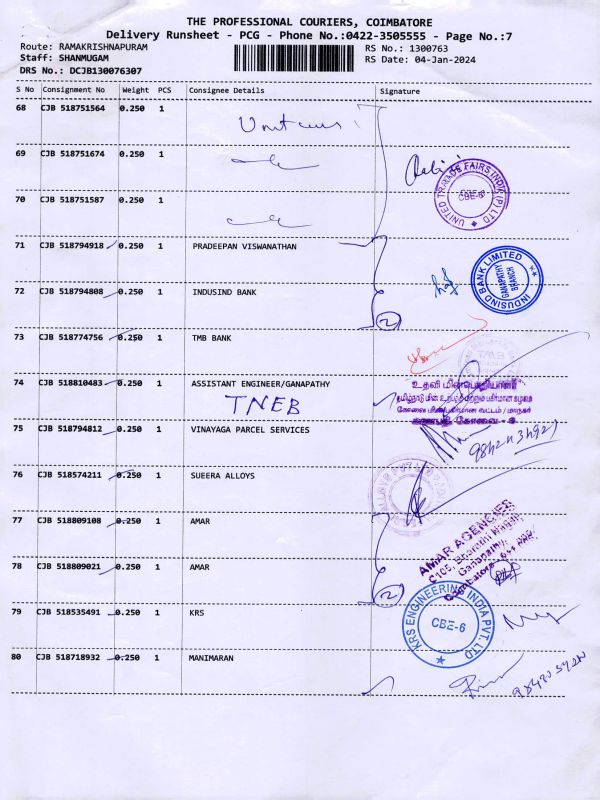 THE PROFESSIONAL COURIERS, COIMBATORE
Delivery Runsheet - PCG - Phone No.:0422-3505555 - Page No.:7
Route: RAMAKRISHNAPURAM RS No.: 1300763
Staff: SHANMUGAM RS Date: 04-Jan-2024
DRS No.: DCJB130076307
S No Consignment No Weight PCS Consignee Details Signature
68 CJB 518751564 0.250 1
69 CJB 518751674 0.250 1
UNITED TRADE FAIRS INDIA (P) LTD
CBE-6
70 CJB 518751587 0.250 1
71 CJB 518794918 0.250 1 PRADEEPAN VISWANATHAN
INDUSIND BANK LIMITED
GANAPATHY BRANCH
72 CJB 518794808 0.250 1 INDUSIND BANK
2
73 CJB 518774756 0.250 1 TMB BANK
74 CJB 518810483 0.250 1 ASSISTANT ENGINEER/GANAPATHY
TNEB
உதவி மின்பொறியாளர்
75 CJB 518794812 0.250 1 VINAYAGA PARCEL SERVICES
76 CJB 518574211 0.250 1 SUEERA ALLOYS
77 CJB 518809108 0.250 1 AMAR
AMAR AGENCIES
Ganapathy,
78 CJB 518809021 0.250 1 AMAR
2
79 CJB 518535491 0.250 1 KRS
KRS ENGINEERING INDIA PVT. LTD
CBE-6
80 CJB 518718932 0.250 1 MANIMARAN